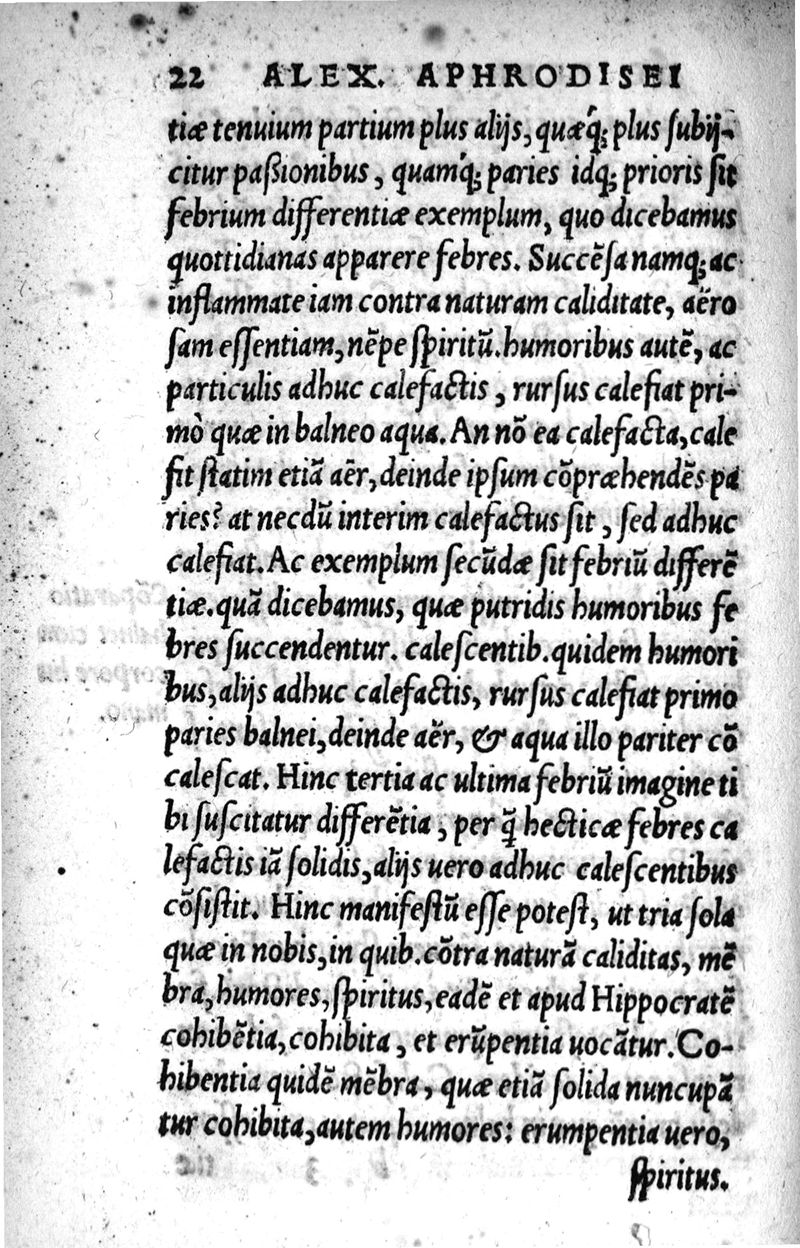 22 ALEX. APHRODISEI
tiæ tenuium partium plus alijs, quæq́; plus ſubij-
citur paßionibus, quamq́; paries idq; prioris ſit
febrium differentiæ exemplum, quo dicebamus
quottidianas apparere febres. Succẽſa namq; ac
inflammate iam contra naturam caliditate, aëro
ſam eſſentiam, nẽpe ſpiritũ. humoribus autẽ, ac
particulis adhuc calefactis, rurſus calefiat pri-
mò quæ in balneo aqua. An nõ ea calefacta, cale
fit ſtatim etiã aër, deinde ipſum cõpræhendẽs pa
ries? at necdũ interim calefactus ſit, ſed adhuc
calefiat. Ac exemplum ſecũdæ ſit febriũ differẽ
tiæ. quã dicebamus, quæ putridis humoribus fe
bres ſuccendentur. caleſcentib. quidem humori
bus, alijs adhuc calefactis, rurſus calefiat primo
paries balnei, deinde aër, & aqua illo pariter cõ
caleſcat. Hinc tertia ac ultima febriũ imagine ti
bi ſuſcitatur differẽtia, per q̃ hecticæ febres ca
lefactis iã ſolidis, alijs uero adhuc caleſcentibus
cõſiſtit. Hinc manifeſtũ eſſe poteſt, ut tria ſola
quæ in nobis, in quib. cõtra naturã caliditas, mẽ
bra, humores, ſpiritus, eadẽ et apud Hippocratẽ
cohibẽtia, cohibita, et erũpentia uocãtur. Co-
hibentia quidẽ mẽbra, quæ etiã ſolida nuncupã
tur cohibita, autem humores: erumpentia uero,
ſpiritus.